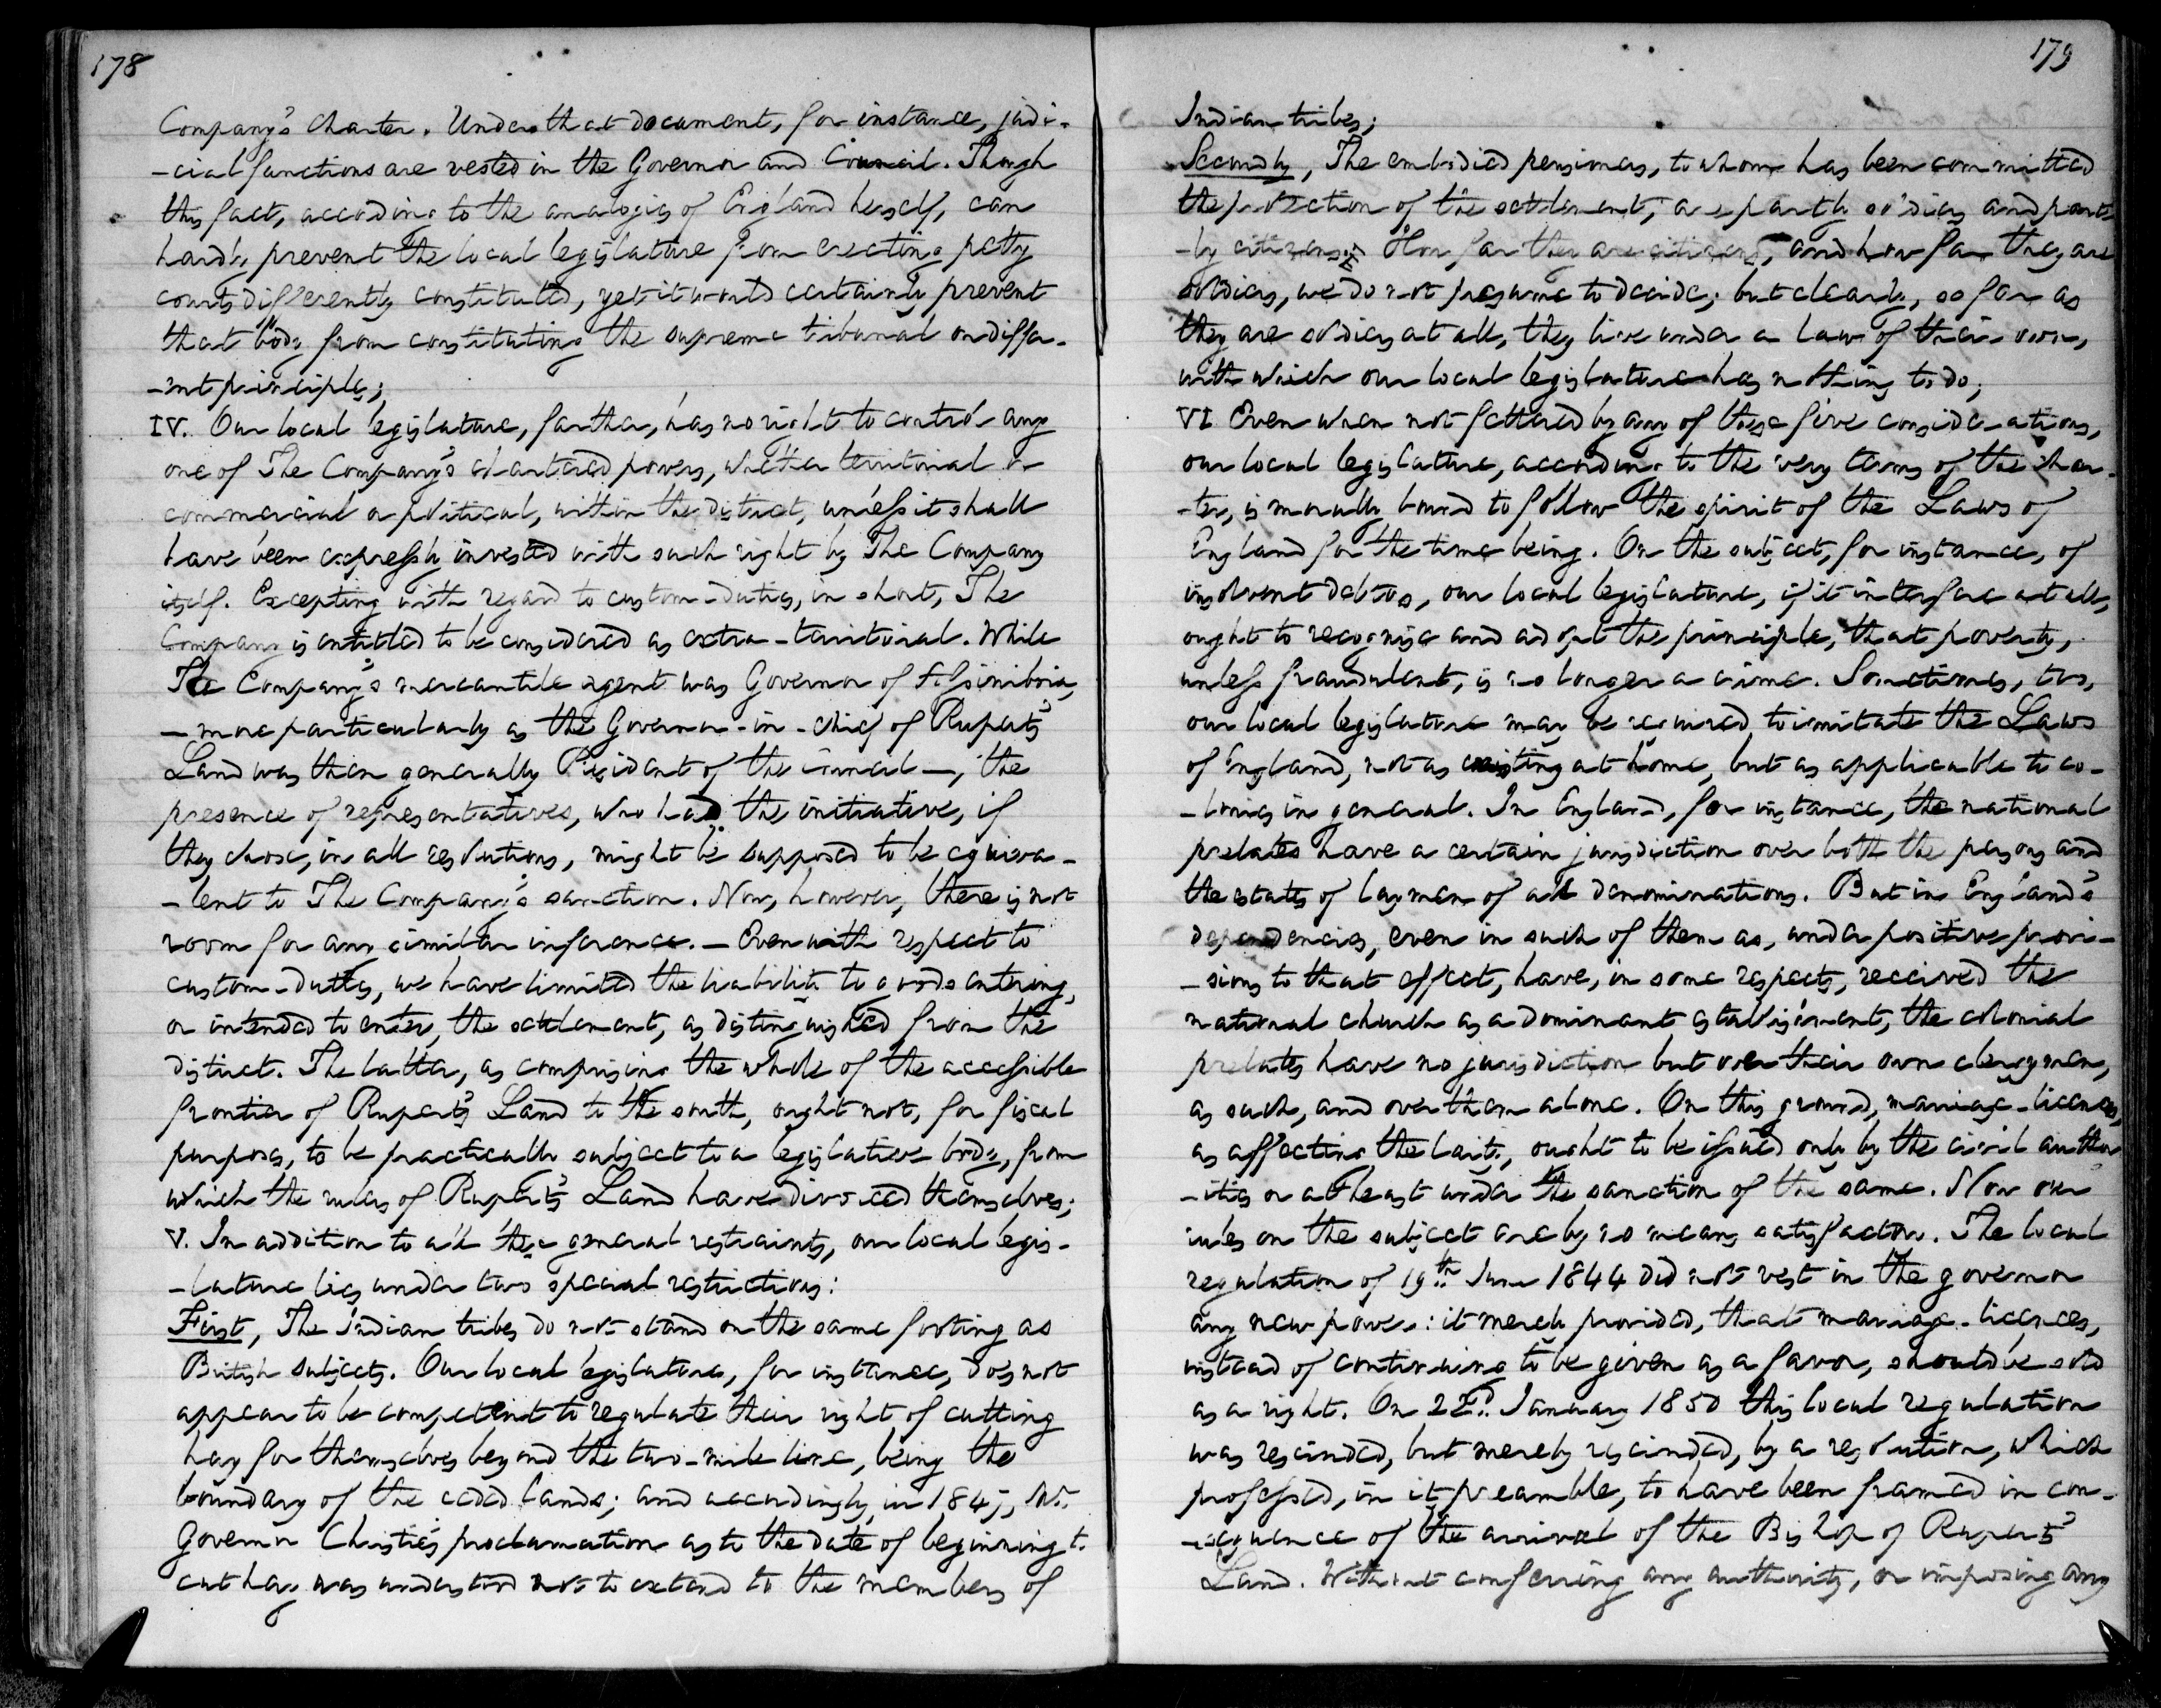 178
Company's Charter. Under that document, for instance, judi-
-cial functions are vested in the Governor and Council. Though
this fact, according to the analogies of England herself, can
hardly prevent the local legislature from erecting petty
courts differently constituted, yet it would certainly prevent
that body from constituting the supreme tribunal on differ-
-ent principles;
IV. Our local legislature, farther, has no right to control any
one of The Company's chartered powers, whether territorial or
commercial or political, within the district, unless it shall
have been expressly invested with such right by The Company
itself. Excepting with regard to custom-duties, in short, The
Company is entitled to be considered as extra-territorial. While
The Company's mercantile agent was Governor of Assiniboia,
— more particularly as the Governor-in-chief of Rupert's
Land was then generally President of the council —, the
presence of representatives, who had the initiative, if
they chose, in all resolutions, might be supposed to be equiva-
-lent to The Company's sanction. Now, however, there is not
room for any similar inference. — Even with respect to
custom-duties, we have limited the liability to goods entering,
or intended to enter, the settlement, as distinguished from the
district. The latter, as comprising the whole of the accessible
frontier of Rupert's Land to the south, ought not, for fiscal
purposes, to be practically subject to a legislative body, from
which the rulers of Rupert's Land have divorced themselves;
V. In addition to all these general restraints, our local legis-
-lature lies under two special restrictions:
First, The Indian tribes do not stand on the same footing as
British subjects. Our local legislature, for instance, does not
appear to be competent to regulate their right of cutting
hay for themselves beyond the two-mile line, being the
boundary of the ceded lands; and accordingly, in 1845, Mr.
Governor Christie's proclamation as to the date of beginning t.
cut hay was understood not to extend to the members of
179
Indian tribes;
Secondly, The embodied pensioners, to whom has been committed
the protection of the settlement, are partly soldiers and part-
-ly citizens. How far they are citizens, and how far they are
soldiers, we do not presume to decide; but clearly, so far as
they are soldiers at all, they live under a law of their own,
with which our local legislature has nothing to do;
VI Even when not fettered by any of these five considerations,
our local legislature, according to the very terms of the char-
-ter, is morally bound to follow the spirit of the Laws of
England for the time being. On the subject, for instance, of
insolvent debtors, our local legislature, if it interfere at all,
ought to recognise and adopt the principle, that poverty,
unless fraudulent, is no longer a crime. Sometimes, too,
our local legislature may be required to imitate the Laws
of England, not as existing at home, but as applicable to co-
-lonies in general. In England, for instance, the national
prelates have a certain jurisdiction over both the persons and
the estates of laymen of all denominations. But in England's
dependencies, even in such of them as, under positive provi-
-sions to that effect, have, in some respects, received the
national church as a dominant establishment, the colonial
prelates have no jurisdiction but over their own clergymen,
as such, and over them alone. On this ground, marriage-licences,
as affecting the laity, ought to be issued only by the civil author-
-ities or at least under the sanction of the same. Now our
rules on the subject are by no means satisfactory. The local
regulation of 19th June 1844 did not vest in the governor
any new power: it merely provided, that marriage-licences,
instead of continuing to be given as a favor, should be sold
as a right. On 2nd January 1850 this local regulation
was rescinded, but merely rescinded, by a resolution, which
professed, in its preamble, to have been framed in con-
-sequence of the arrival of the Bishop of Rupert's
Land. Without conferring any authority, or imposing any